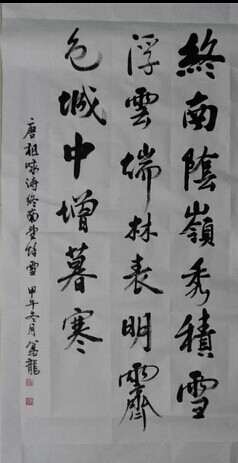 終南陰嶺秀積雪
浮雲端林表明霽
色城中增暮寒
唐祖咏诗終南望馀雪 甲午冬月 龍